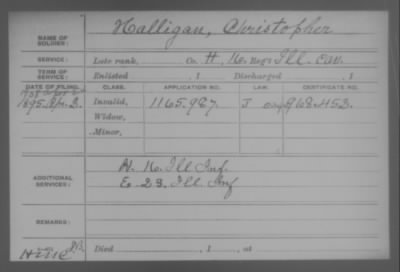 NAME OF SOLDIER: Halligan, Christopher
SERVICE: Late rank, Co. H, 16 Reg't Ill. Cav.
TERM OF SERVICE: Enlisted , 1 Discharged , 1
DATE OF FILING. CLASS. APPLICATION NO. LAW. CERTIFICATE NO.
1895, Apr. 3. Invalid, 1165.987. J 968.453.
Widow,
Minor,
ADDITIONAL SERVICES: H. 16. Ill Inf.
E 23. Ill Inf
REMARKS:
Died , 1 , at